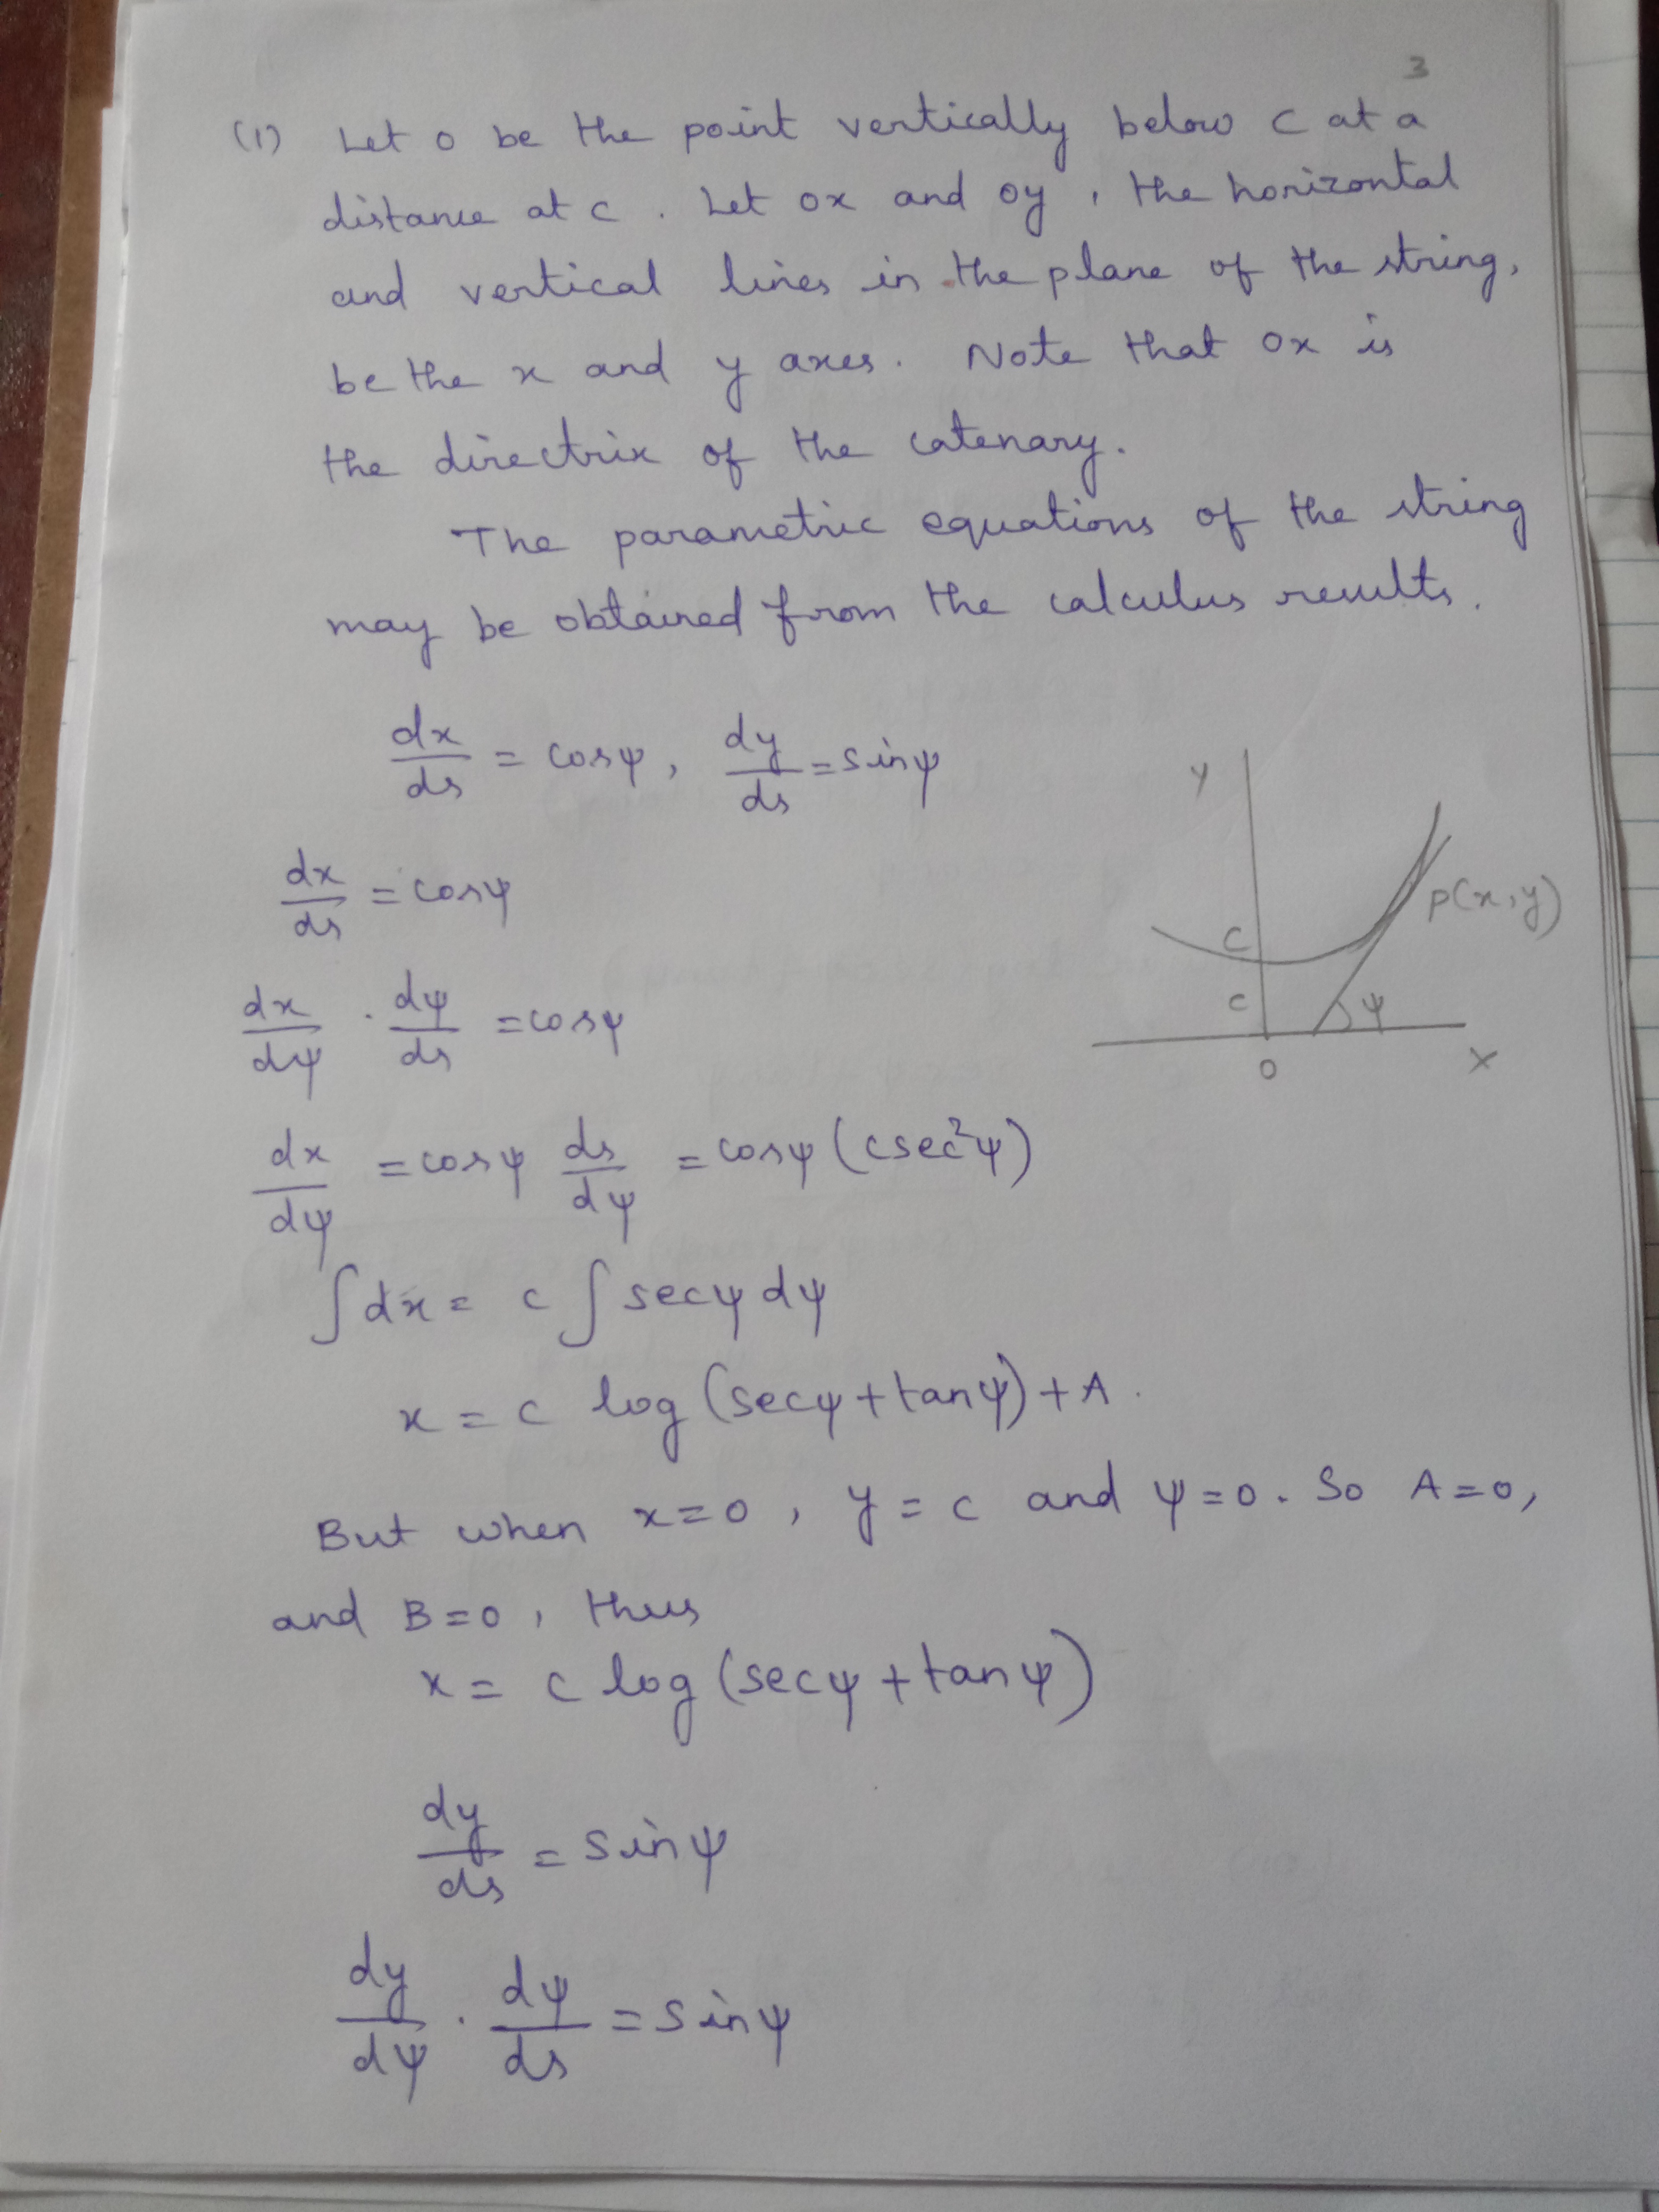 3
(1) Let O be the point vertically below C at a
distance at c . Let ox and oy , the horizontal
and vertical lines in the plane of the string,
be the x and y axes. Note that ox is
the directrix of the catenary.
The parametric equations of the string
may be obtained from the calculus results.
dx/ds = cosψ, dy/ds = sinψ
dx/ds = cosψ
dx/dψ · dψ/ds = cosψ
dx/dψ = cosψ ds/dψ = cosψ (csec²ψ)
∫dx = c ∫ secψ dψ
x = c log (secψ + tanψ) + A .
But when x=0, y = c and ψ=0. So A=0,
and B=0, thus
x = c log (secψ + tanψ)
dy/ds = sinψ
dy/dψ · dψ/ds = sinψ
Y
P(x,y)
C
c
ψ
O
X